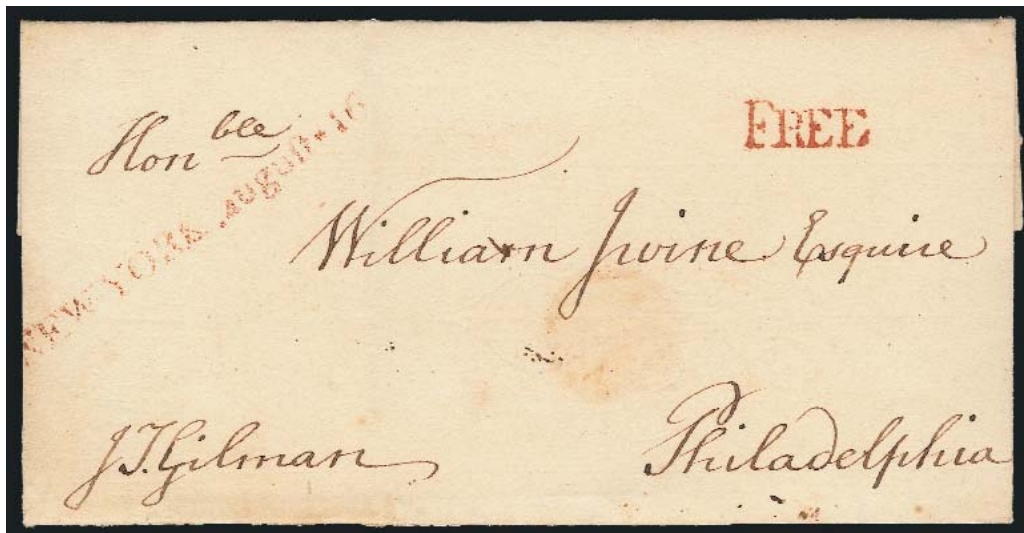 FREE
Honble
NEW-YORK, august 16
William Irvine Esquire
J T. Gilman
Philadelphia